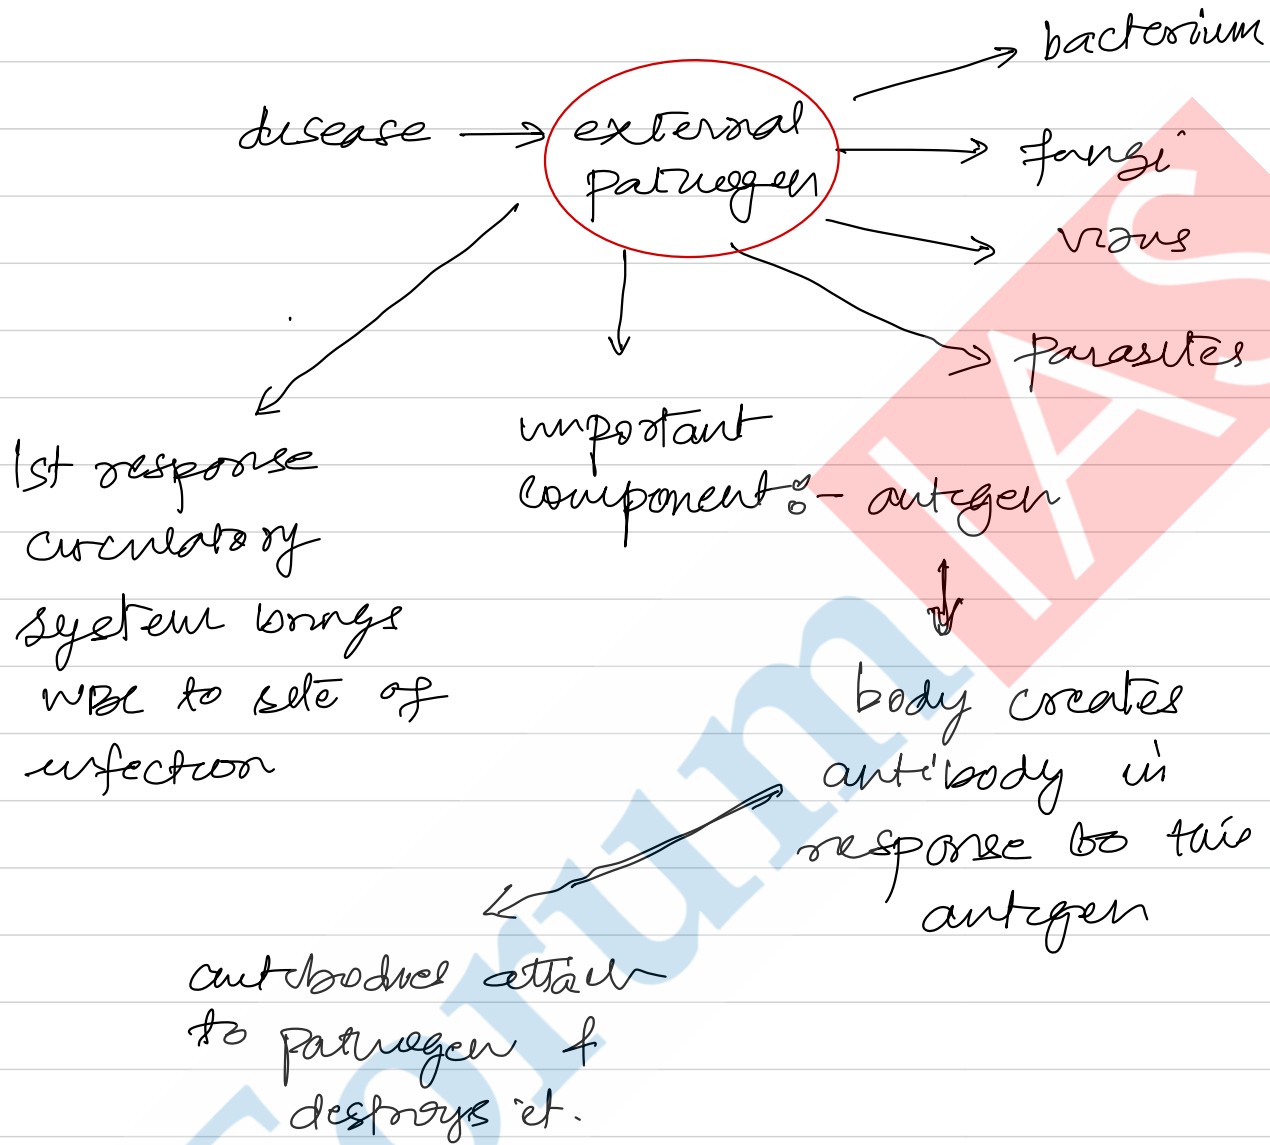 bacterium
disease → external
pathogen
fungi
virus
parasites
1st response
circulatory
system brings
WBC to site of
infection
important
component :- antigen
body creates
antibody in
response to this
antigen
antibodies attach
to pathogen &
destroys it.
Forum IAS